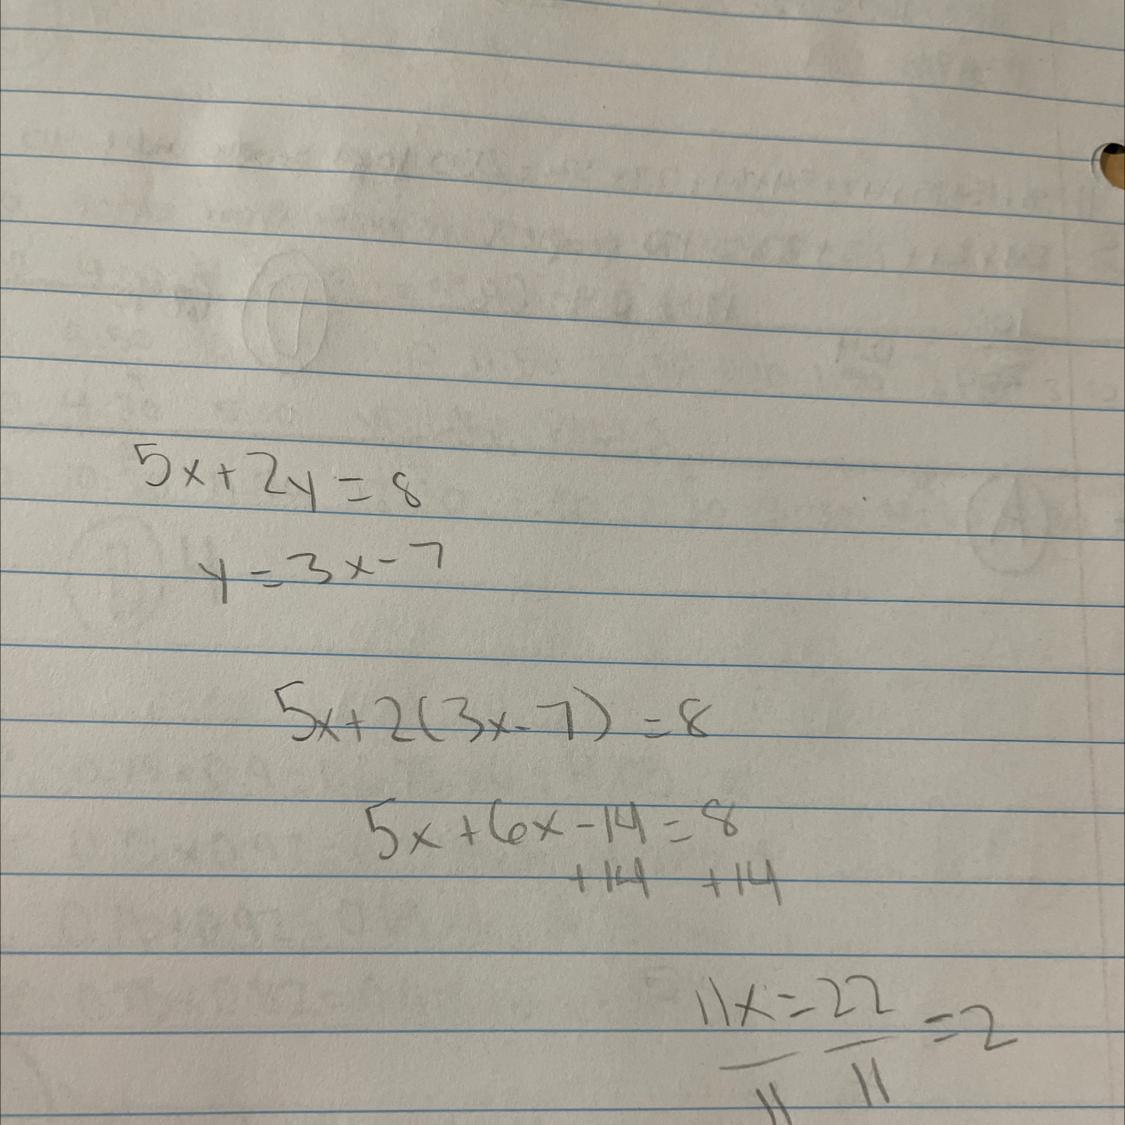 5x+2y=8
y=3x-7
5x+2(3x-7)=8
5x+6x-14=8
+14 +14
11x=22 =2
11 11